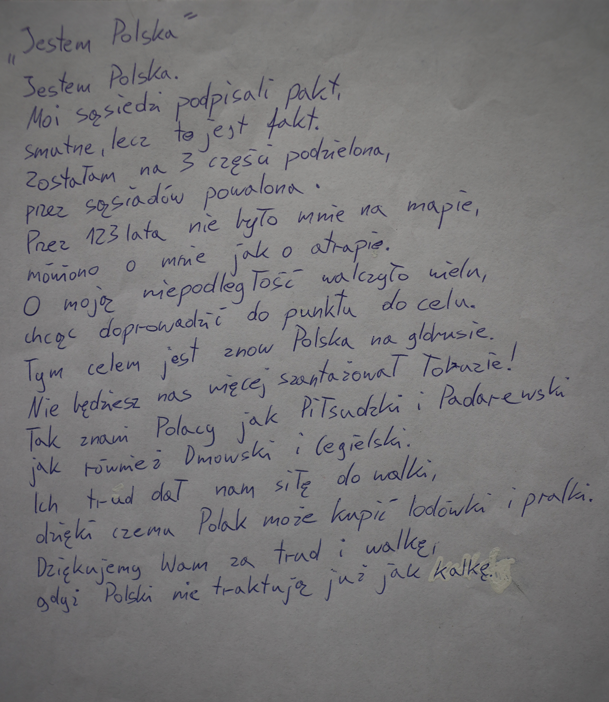 „Jestem Polska"
Jestem Polska.
Moi sąsiedzi podpisali pakt,
smutne, lecz to jest fakt.
Zostałam na 3 części podzielona,
przez sąsiadów powalona.
Przez 123 lata nie było mnie na mapie,
mówiono o mnie jak o atrapie.
O moją niepodległość walczyło wielu,
chcąc doprowadzić do punktu do celu.
Tym celem jest znow Polska na globusie.
Nie będziesz nas więcej szantażował Łobuzie!
Tak znani Polacy jak Piłsudzki i Padarewski
jak również Dmowski i Cegielski.
Ich trud dał nam siłę do walki,
dzięki czemu Polak może kupić lodówki i pralki.
Dziękujemy Wam za trud i walkę,
gdyż Polski nie traktują już jak kalkę.